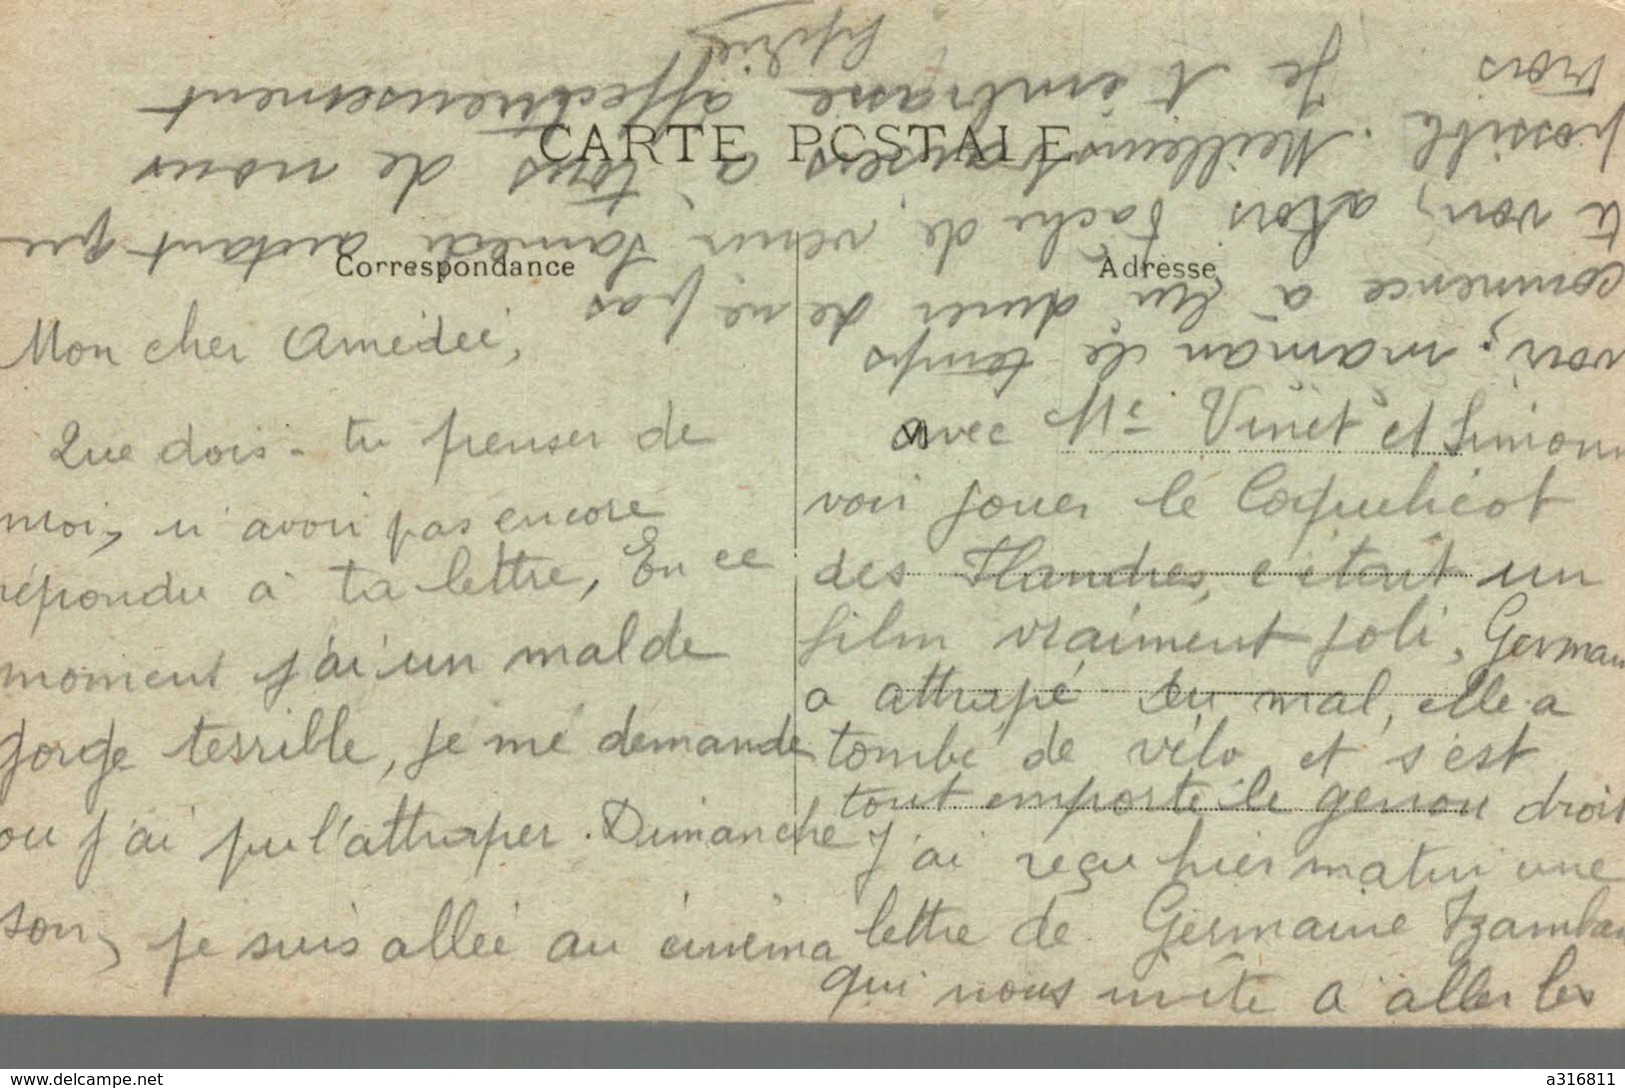 CARTE POSTALE
Correspondance
Adresse
Mon cher Amédeé,
Que dois-tu penser de
moi, n'avoir pas encore
répondu à ta lettre, En ce
moment j'ai un mal de
gorge terrible, je me demande
ou j'ai pu l'attraper. Dimanche
soir, je suis allée au cinéma
avec Mr Vinet et Simonn
voir jouer le Coquelicot
des Flandres, c'était un
film vraiment joli, German
a attrapé du mal, elle a
tombé de vélo et s'est
tout emporté le genou droit
J'ai reçu hier matin une
lettre de Germaine Izambar
qui nous invite à aller les
voir; maman le temps
commence à lui durer de ne pas
te voir, alors tache de venir samedi autant que
possible. Meilleurs baisers à tous de nous
trois Je t'embrasse affectueusement
www.delcampe.net
a316811